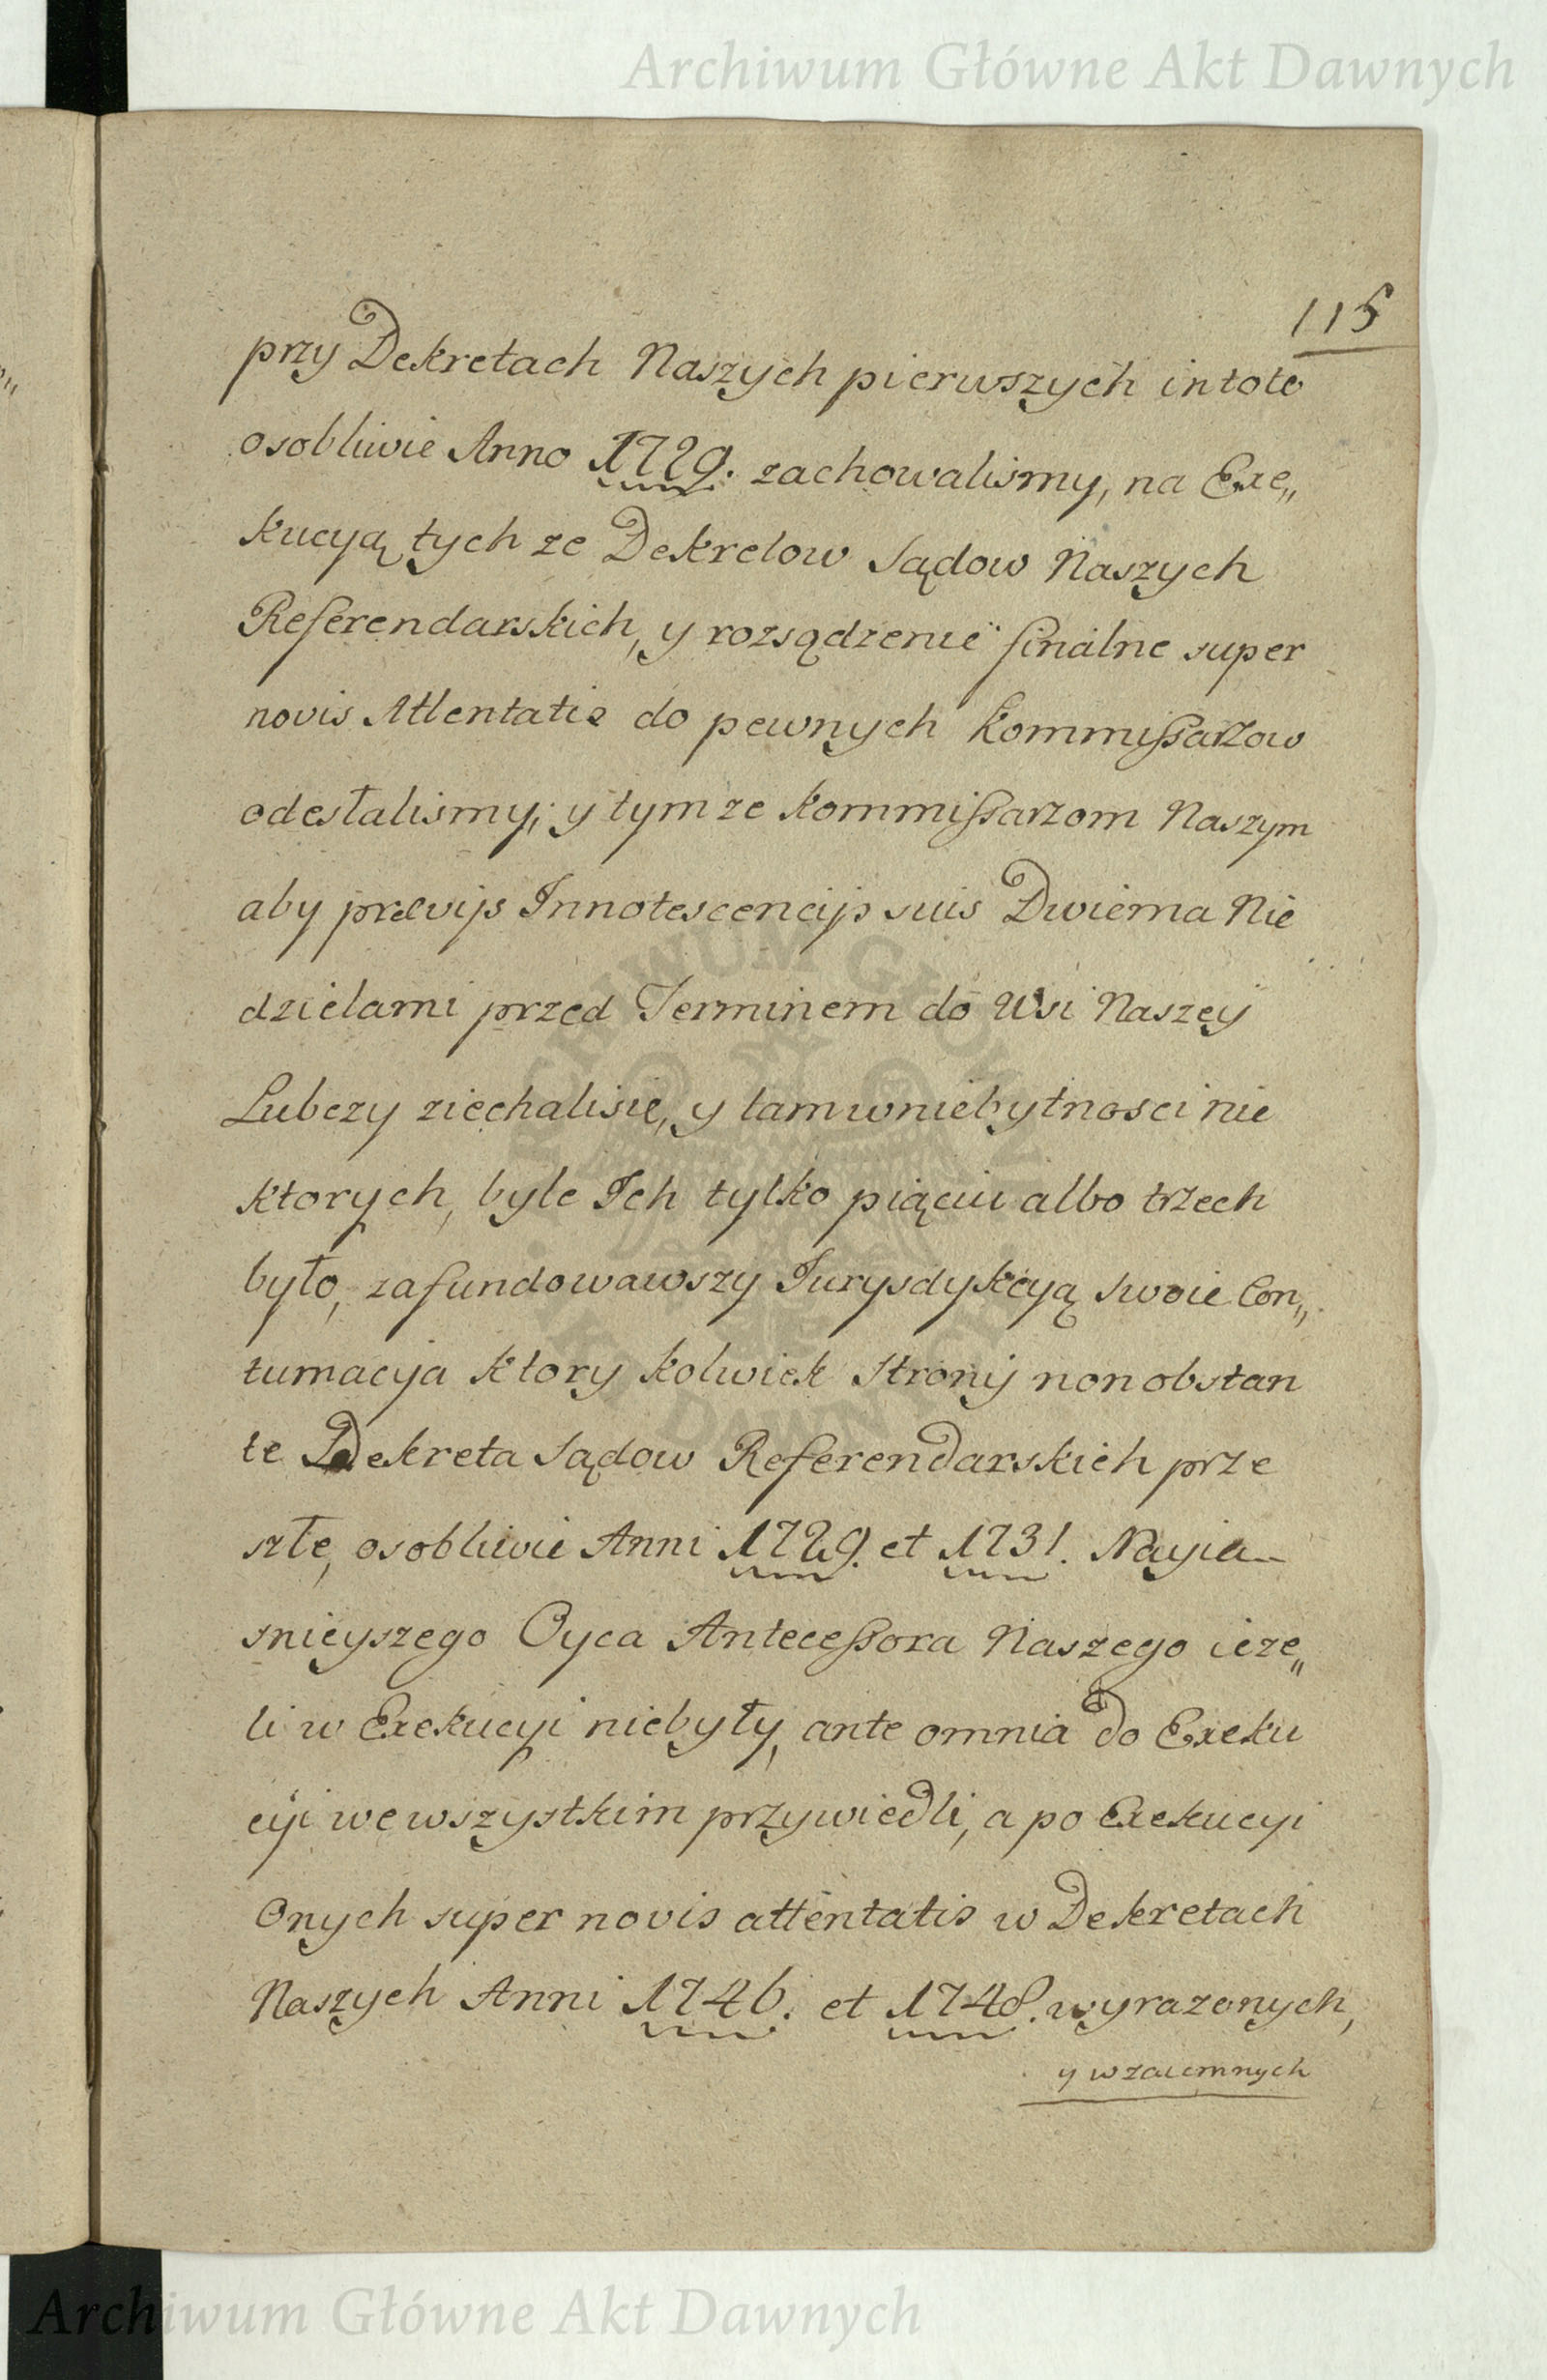 Archiwum Główne Akt Dawnych
115
przy Dekretach Naszych pierwszych in toto
osobliwie Anno 1729. zachowalismy, na Exe„
kucyą tych ze Dekretow Sądow Naszych
Referendarskich, y rozsądzenie finalne super
novis Attentatis do pewnych Kommissarzow
odesłalismy; y tym ze Kommissarzom Naszym
aby prævijs Innotescencijs suis Dwiema Nie
dzielami przed Terminem do Wsi Naszey
Lubczy ziechalisie, y tam w niebytnosci nie
ktorych, byle Ich tylko piąciu albo trzech
było, zafundowawszy Jurysdykcyą swoie Con„
tumacya ktory kolwiek Strony non obstan
te Dekreta Sądow Referendarskich prze
szłe, osobliwie Anni 1729. et 1731. Nayia–
snieyszego Oyca Antecessora Naszego ieze„
li w Exekucyi niebyły, ante omnia do Exeku
cyi we wszystkim przywiedli, a po Exekucyi
Onych super novis attentatis w Dekretach
Naszych Anni 1746. et 1748. wyrazonych,
y wzaiemnych
ARCHIWUM GŁÓWNE AKT DAWNYCH
Archiwum Główne Akt Dawnych